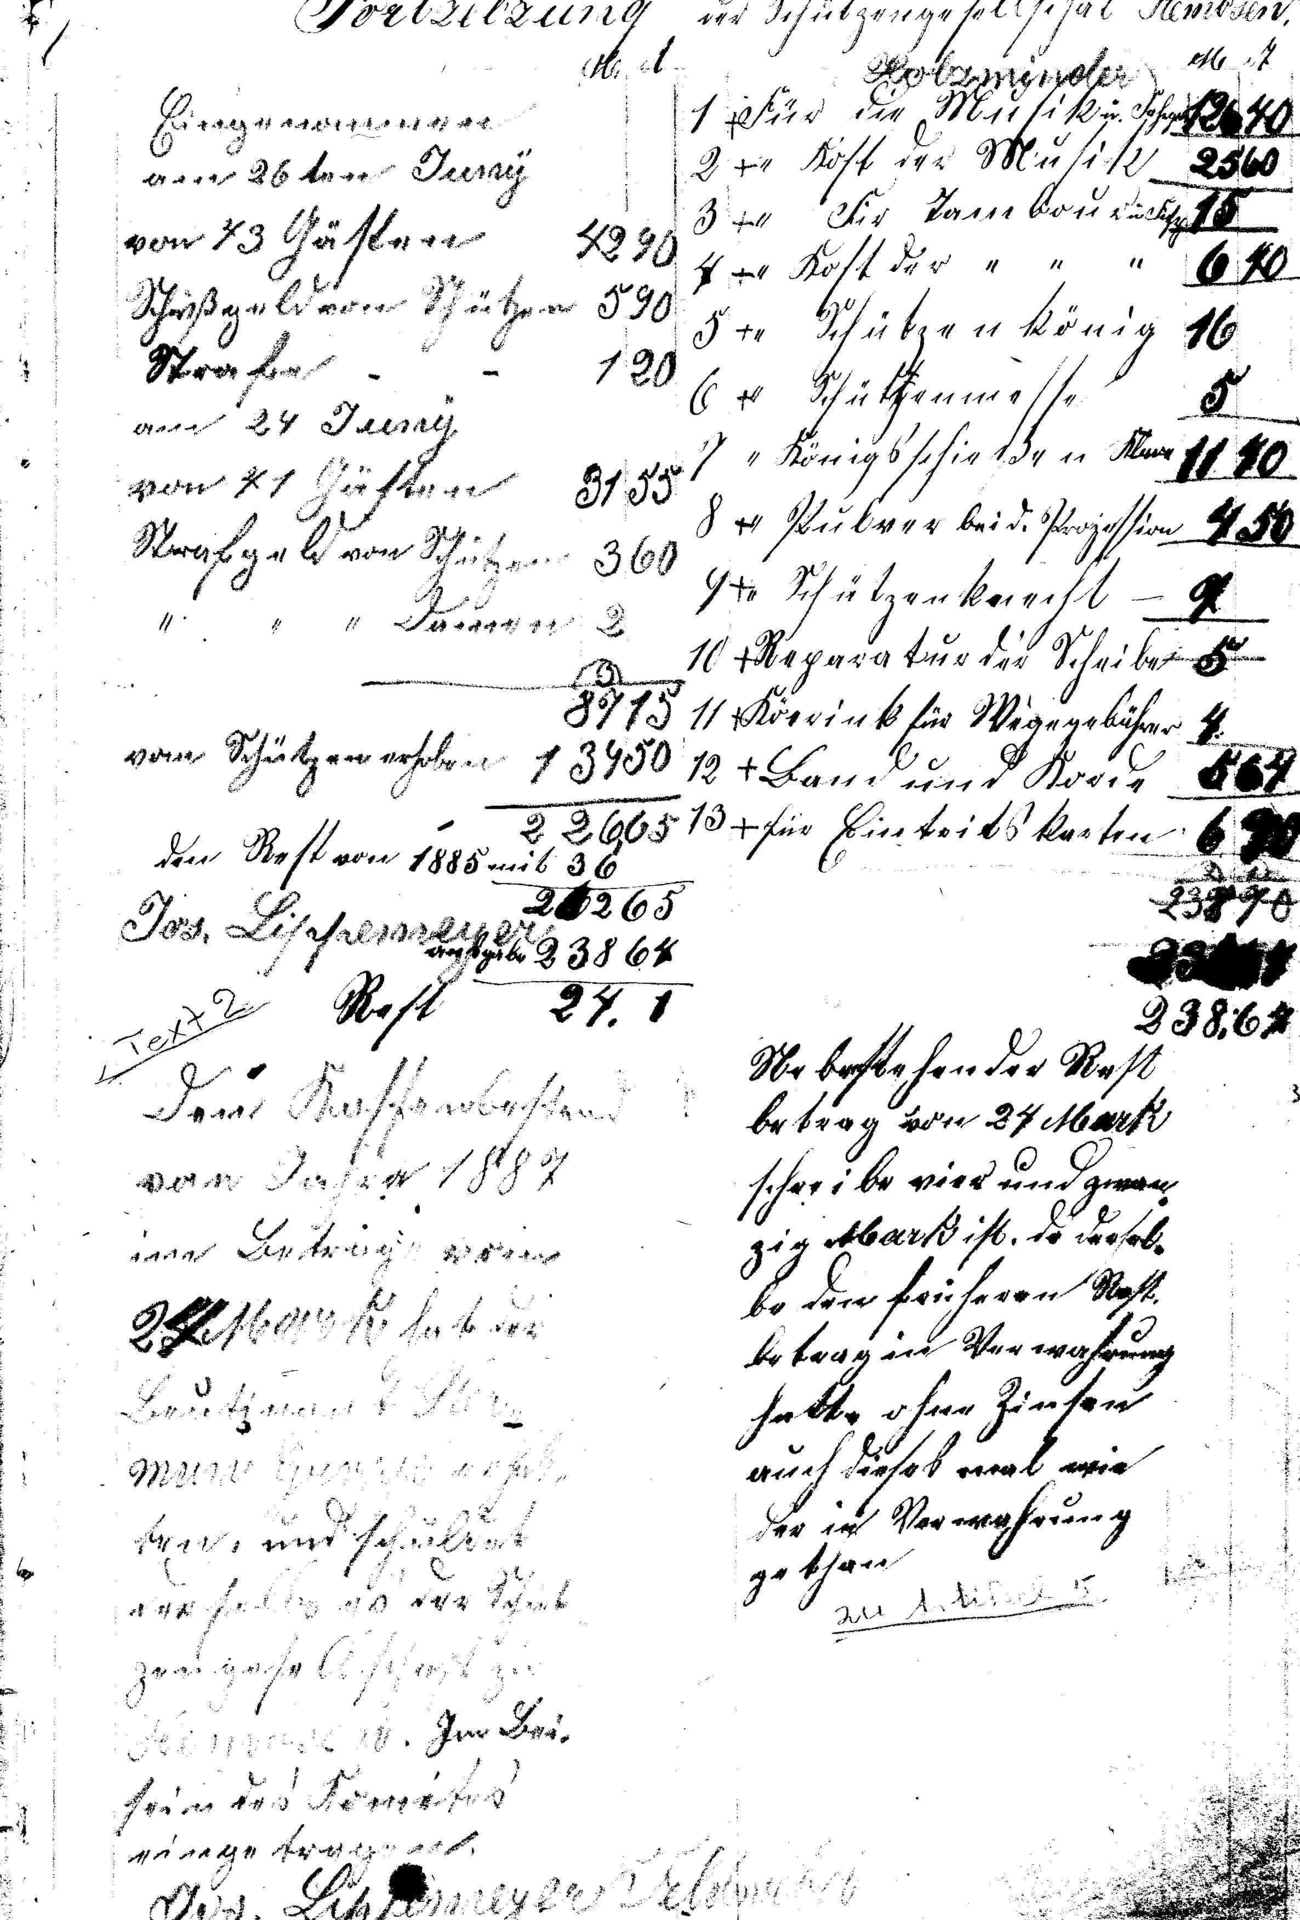 Fortsetzung der Schützengesellschaft Hembsen.
M
Eingenommen
am 26ten Juny
von 43 Gästen 42 90
Schießgeld von Schützen 5 90
Strafe - - 1 20
am 24 Juny
von 41 Gästen 31 55
Strafgeld von Schützen 3 60
" " " Damen 2
87 15
vom Schützen erhoben 1 39 50
2 26,65
den Rest von 1885 mit 36
26265
Jos. Lippemeyer
ausgabe 238 64
Rest 24. 1
Text 2
Den Kassenbestand
vom Jahre 1887
im Betrage von
24 Mark hat der
Leutnant
ten, und schuldet
derselbe es der Schüt
zengesellschaft zu
Hembsen. Im Bei-
sein des Komites
eingetragen.
Jos. Lippemeyer
Holzminder M
1 + Für die Musik u. 126 40
2 + " Kost der Musik 25 60
3 + " Für Tambour u. 15
4 + " Kost der " " " 6 40
5 + " Schützenkönig 16
6 + " Schützenmesse 5
7 " Königsschießen 11 40
8 + " Pulver bei d. Prozession 4 50
9 + " Schützenknecht - 9
10 + Reparatur der Scheibe 5
11 + Köerink für Wegegebührer 4
12 + Band und Korde 5 64
13 + für Eintritskarten 6
238 70
238.64
Nebestehender Rest
betrag von 24 Mark
schreibe vier und zwan
zig Mark ist. da dersel-
be den früheren Rest.
betrag in Verwahrung
hatte ohne Zinsen
auch dieses mal wie
der in Verwahrung
gethan
zu Artikel 5